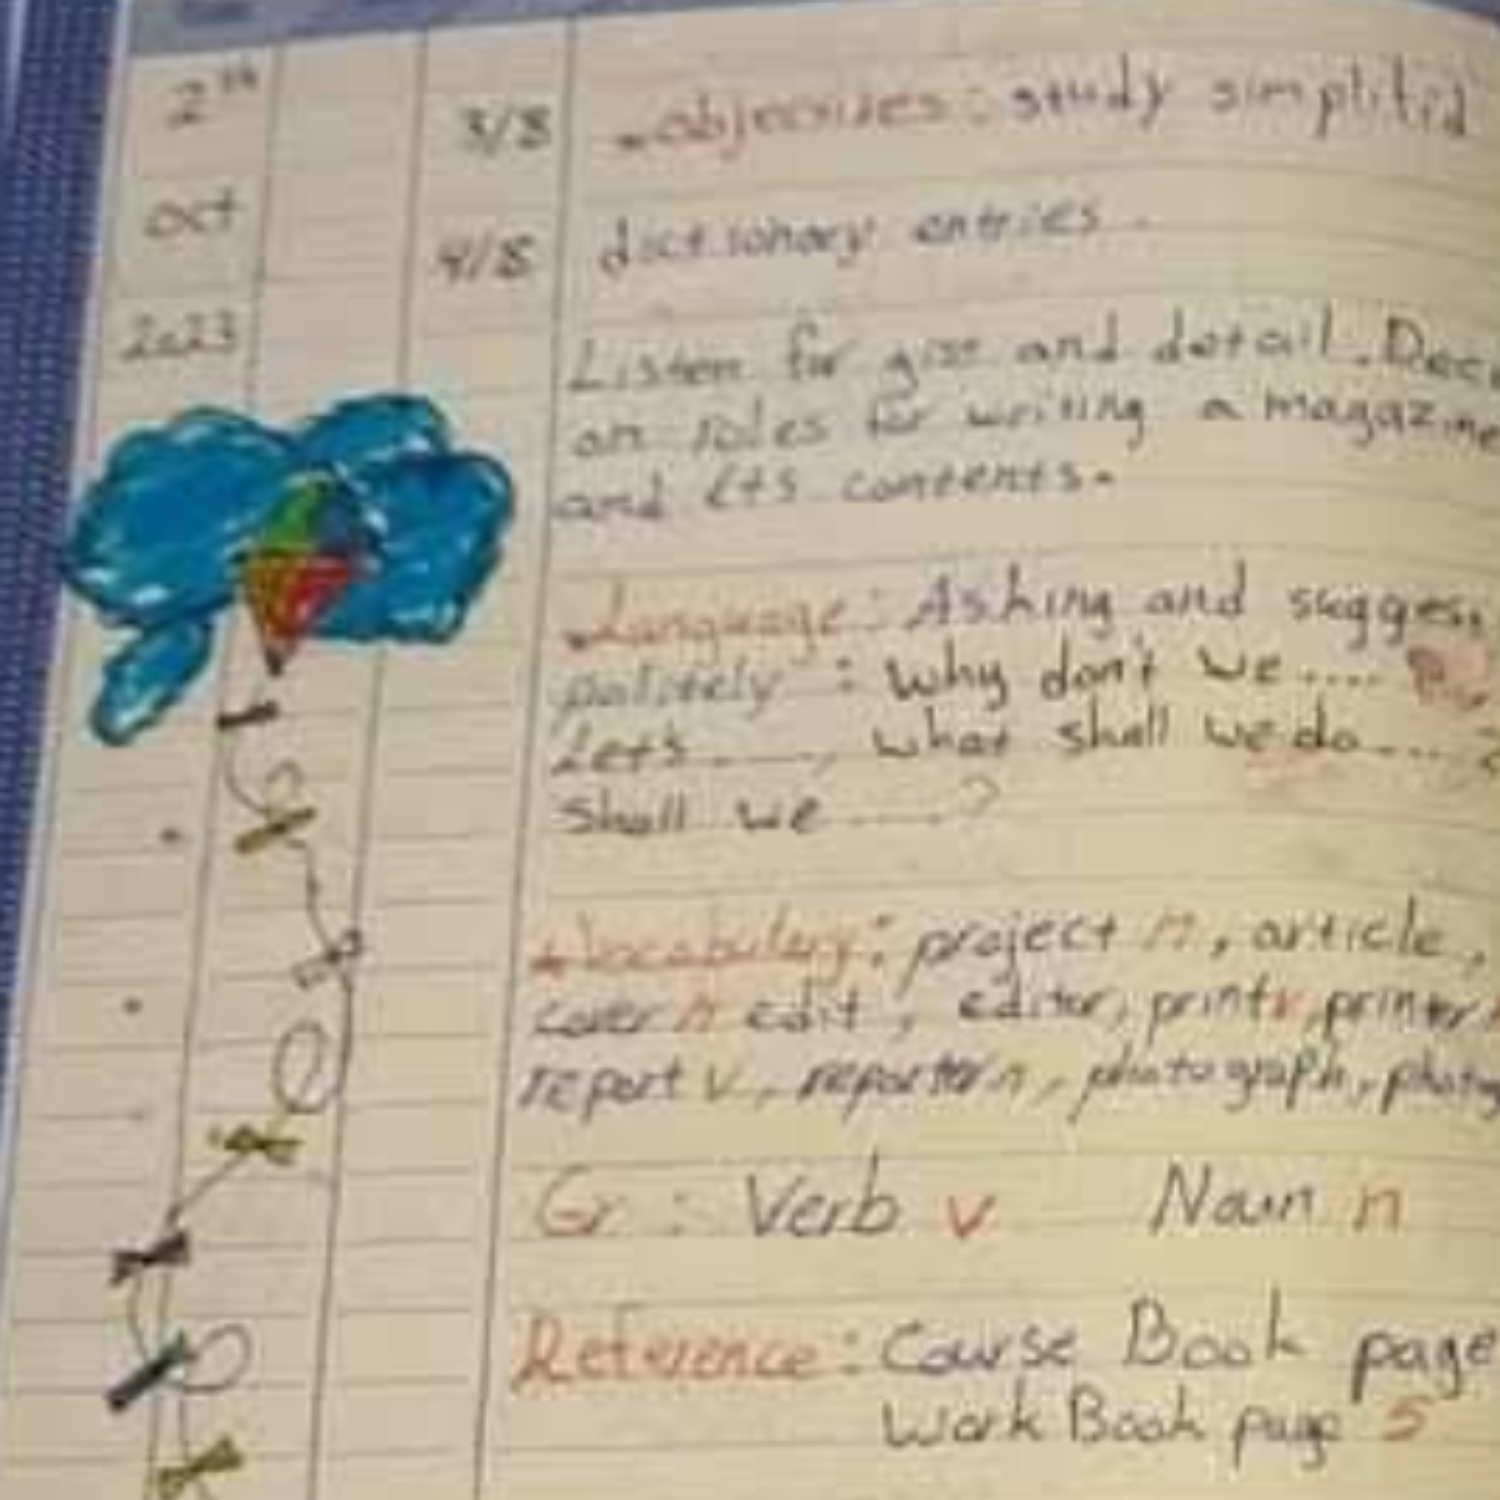 2nd
3/8
objectives: study simplifid
oct
4/8
dictionary entries.
2023
Listen for gist and detail. Deci
on roles for writing a magazine
and its contents.
Language: Asking and sugges
politely: why don't we.....
Let's ......, what shall we do.....?
Shall we ......?
Vocabulary: project n, article,
cover n edit, editor, print v, printer n
report v, reporter n, photograph, photog
Gr: Verb v Noun n
Reference: Course Book page
Work Book page 5